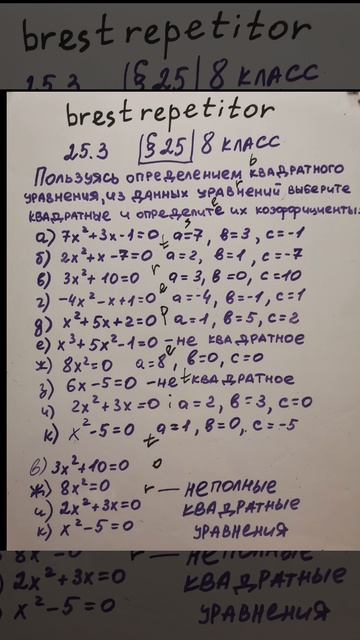 brestrepetitor
25.3 |§25| 8 КЛАСС
brestrepetitor
25.3 |§25| 8 КЛАСС
Пользуясь определением квадратного
уравнения, из данных уравнений выберите
квадратные и определите их коэффициенты.
а) 7x²+3x-1=0; a=7, b=3, c=-1
б) 2x²+x-7=0; a=2, b=1, c=-7
в) 3x²+10=0 a=3, b=0, c=10
г) -4x²-x+1=0; a=-4, b=-1, c=1
д) x²+5x+2=0 a=1, b=5, c=2
е) x³+5x²-1=0-не квадратное
ж) 8x²=0 a=8, b=0, c=0
з) 6x-5=0-не квадратное
и) 2x²+3x=0; a=2, b=3, c=0
к) x²-5=0 a=1, b=0, c=-5
в) 3x²+10=0
ж) 8x²=0 — неполные
и) 2x²+3x=0 квадратные
к) x²-5=0 уравнения
2x²+3x=0 квадратные
x²-5=0 уравнения